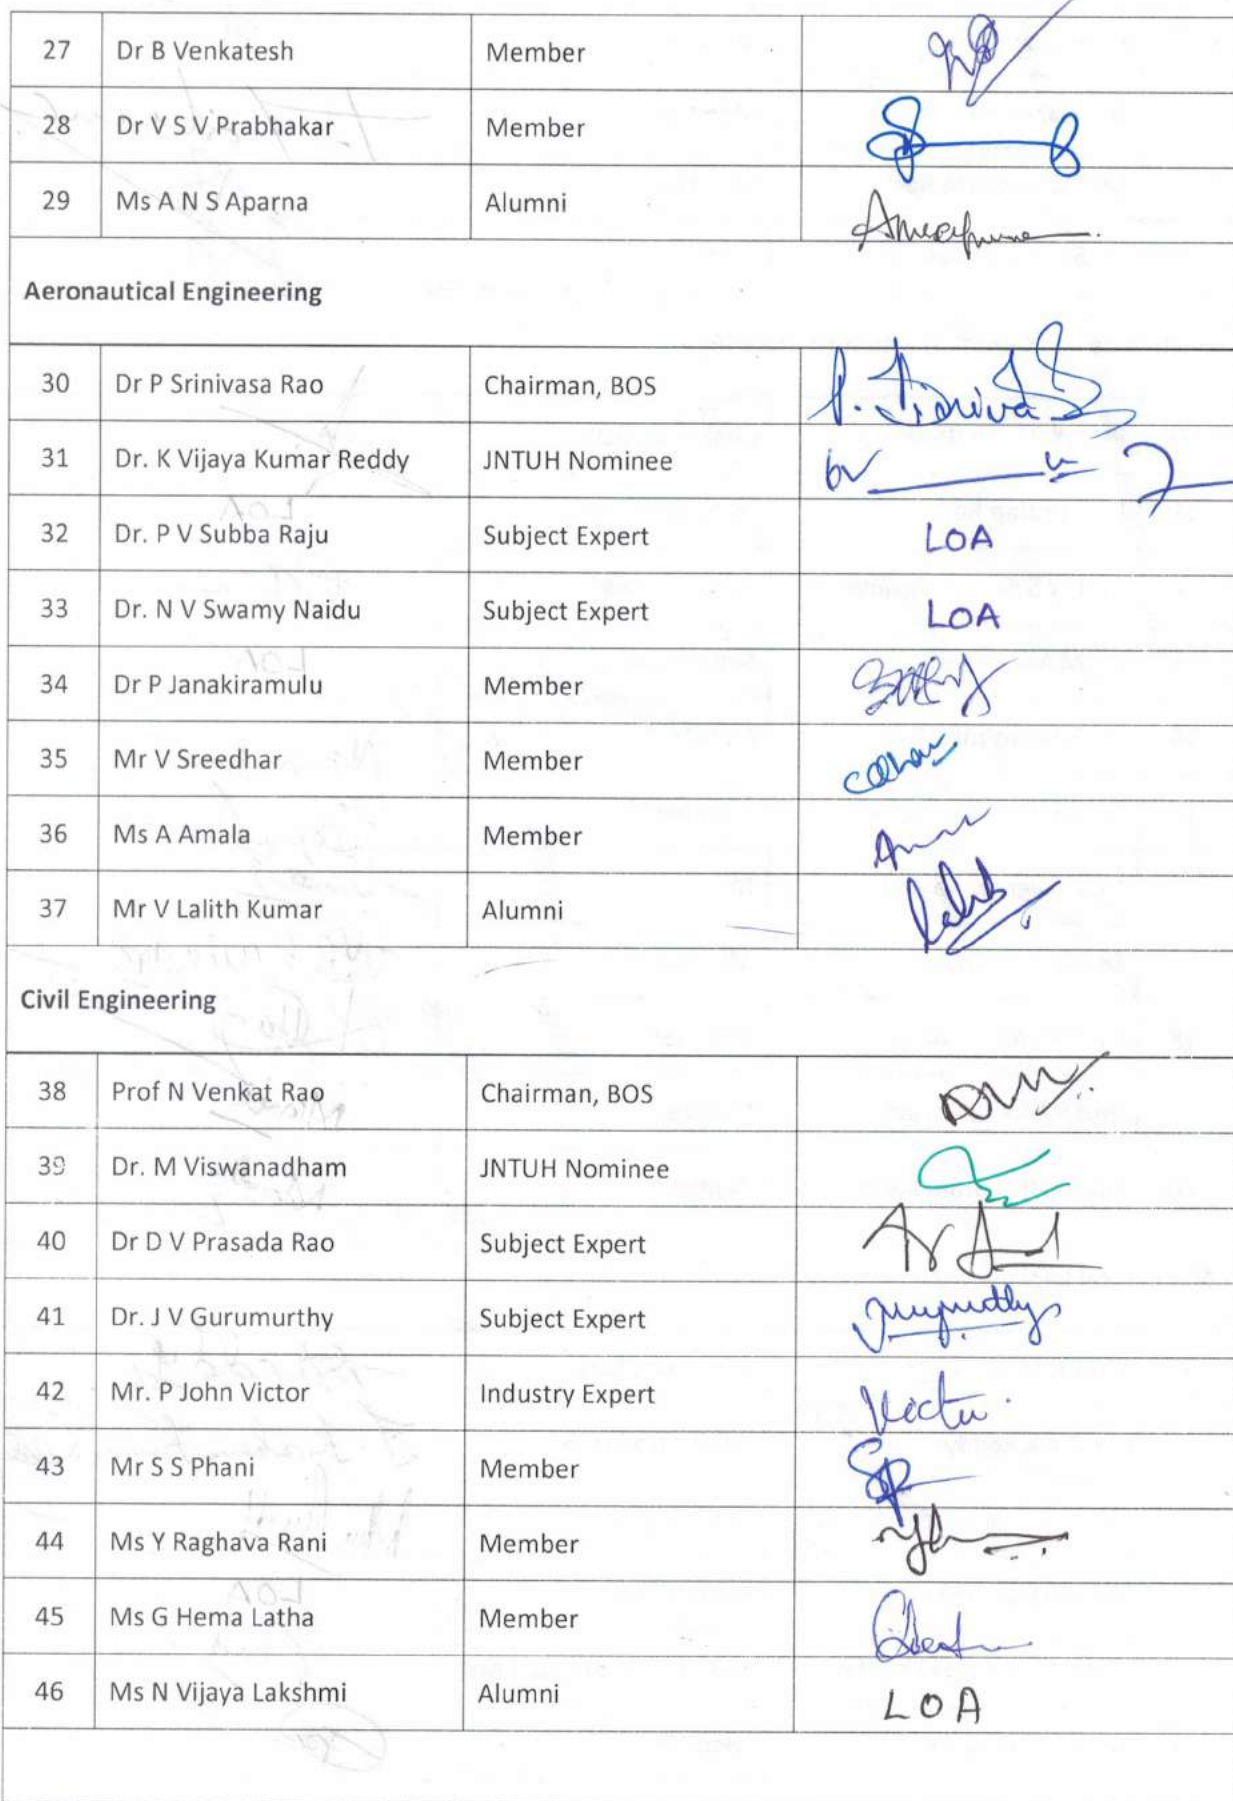 27 Dr B Venkatesh Member
28 Dr V S V Prabhakar Member
29 Ms A N S Aparna Alumni
Aeronautical Engineering
30 Dr P Srinivasa Rao Chairman, BOS
31 Dr. K Vijaya Kumar Reddy JNTUH Nominee
32 Dr. P V Subba Raju Subject Expert LOA
33 Dr. N V Swamy Naidu Subject Expert LOA
34 Dr P Janakiramulu Member
35 Mr V Sreedhar Member
36 Ms A Amala Member
37 Mr V Lalith Kumar Alumni
Civil Engineering
38 Prof N Venkat Rao Chairman, BOS
39 Dr. M Viswanadham JNTUH Nominee
40 Dr D V Prasada Rao Subject Expert
41 Dr. J V Gurumurthy Subject Expert
42 Mr. P John Victor Industry Expert
43 Mr S S Phani Member
44 Ms Y Raghava Rani Member
45 Ms G Hema Latha Member
46 Ms N Vijaya Lakshmi Alumni LOA